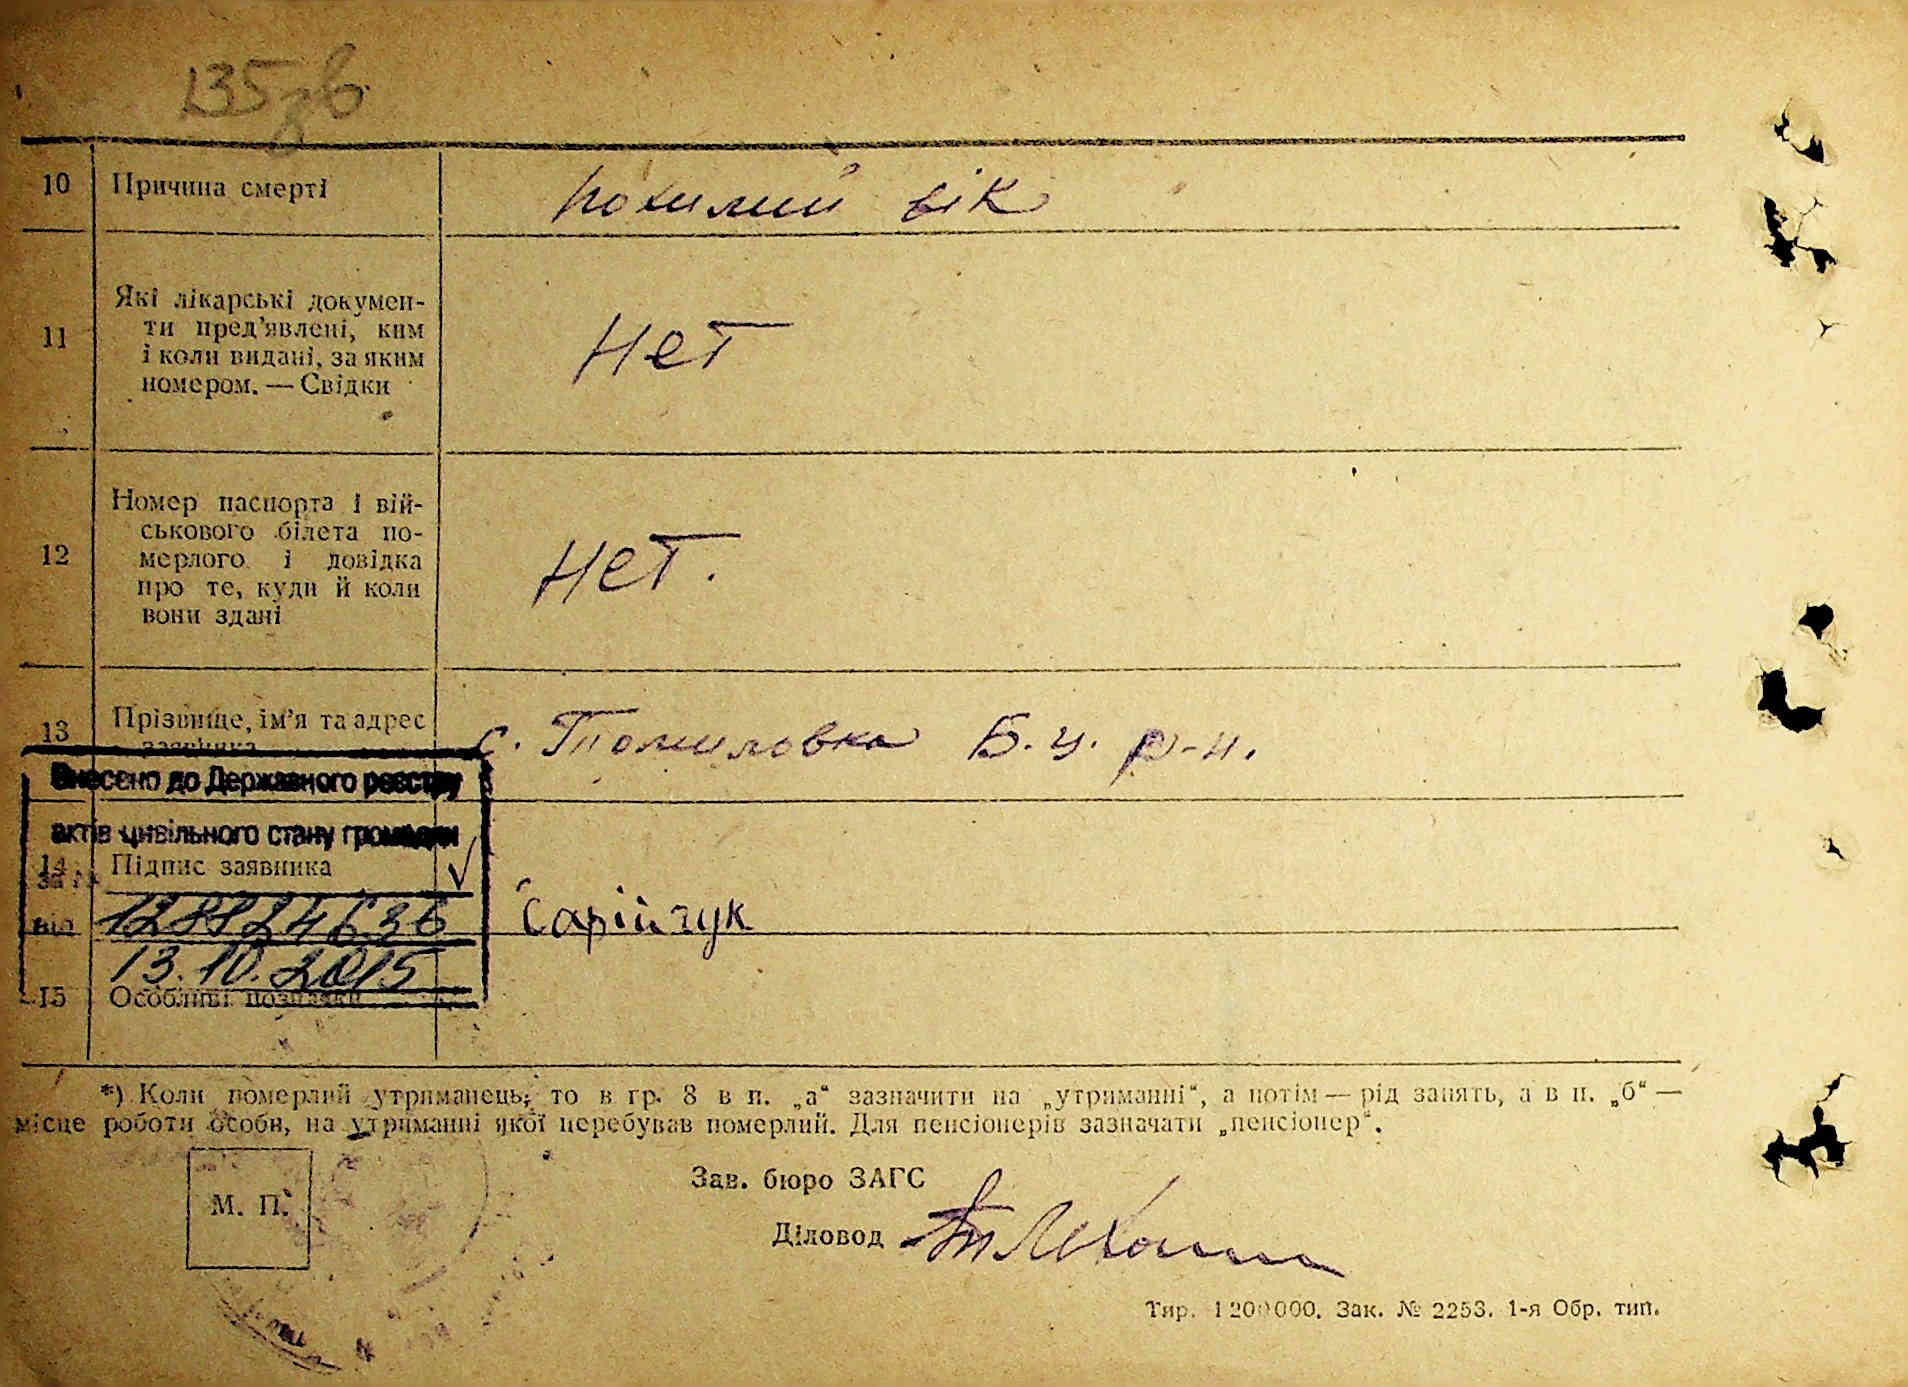 135 зв
10 Причина смерті похилий вік
11 Які лікарські докумен-
ти пред’явлені, ким
і коли видані, за яким
номером. — Свідки
Нет
12 Номер паспорта і вій-
ськового білета по-
мерлого і довідка
про те, куди й коли
вони здані
Нет.
13 Прізвище, ім’я та адрес
заявника
с. Томиловка Б.ц. р-н.
Внесено до Державного реєстру
актів цивільного стану громадян
14 Підпис заявника
Сарійчук
за №
від
13.10.2015
15 Особливі познаки
*) Коли померлий утриманець, то в гр. 8 в п. „а“ зазначити на „утриманні“, а потім — рід занять, а в п. „б“ —
місце роботи особи, на утриманні якої перебував померлий. Для пенсіонерів зазначати „пенсіонер“.
М. П.
Зав. бюро ЗАГС
Діловод
Тир. 1200000. Зак. № 2253. 1-я Обр. тип.